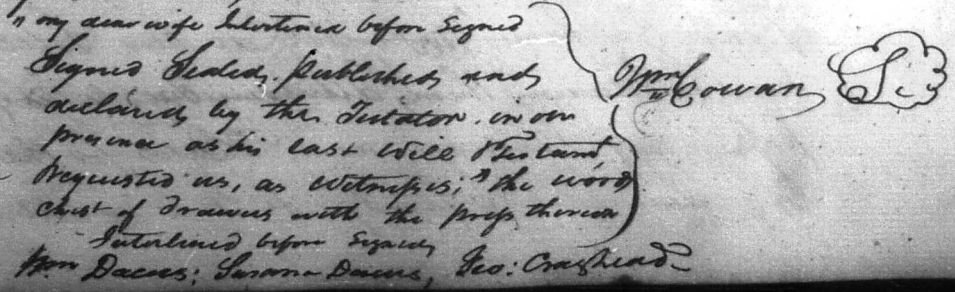 " my dear wife Interlined before Signed
Signed Sealed, published and
declared by the Testator in our
presence as his last Will & Testamt,
Requested us, as Witnesses; " the word
chest of drawers with the press thereon
Interlined before Signed
Wm Dacus; Susana Dacus, Geo: Craghead
Wm Cowan